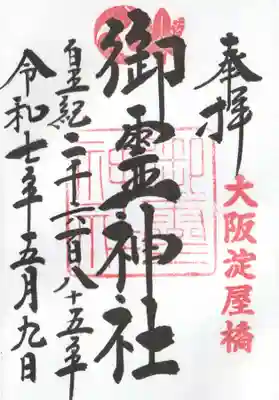 奉拝
大阪淀屋橋
御霊神社
皇紀二千六百八十五年
令和七年五月九日